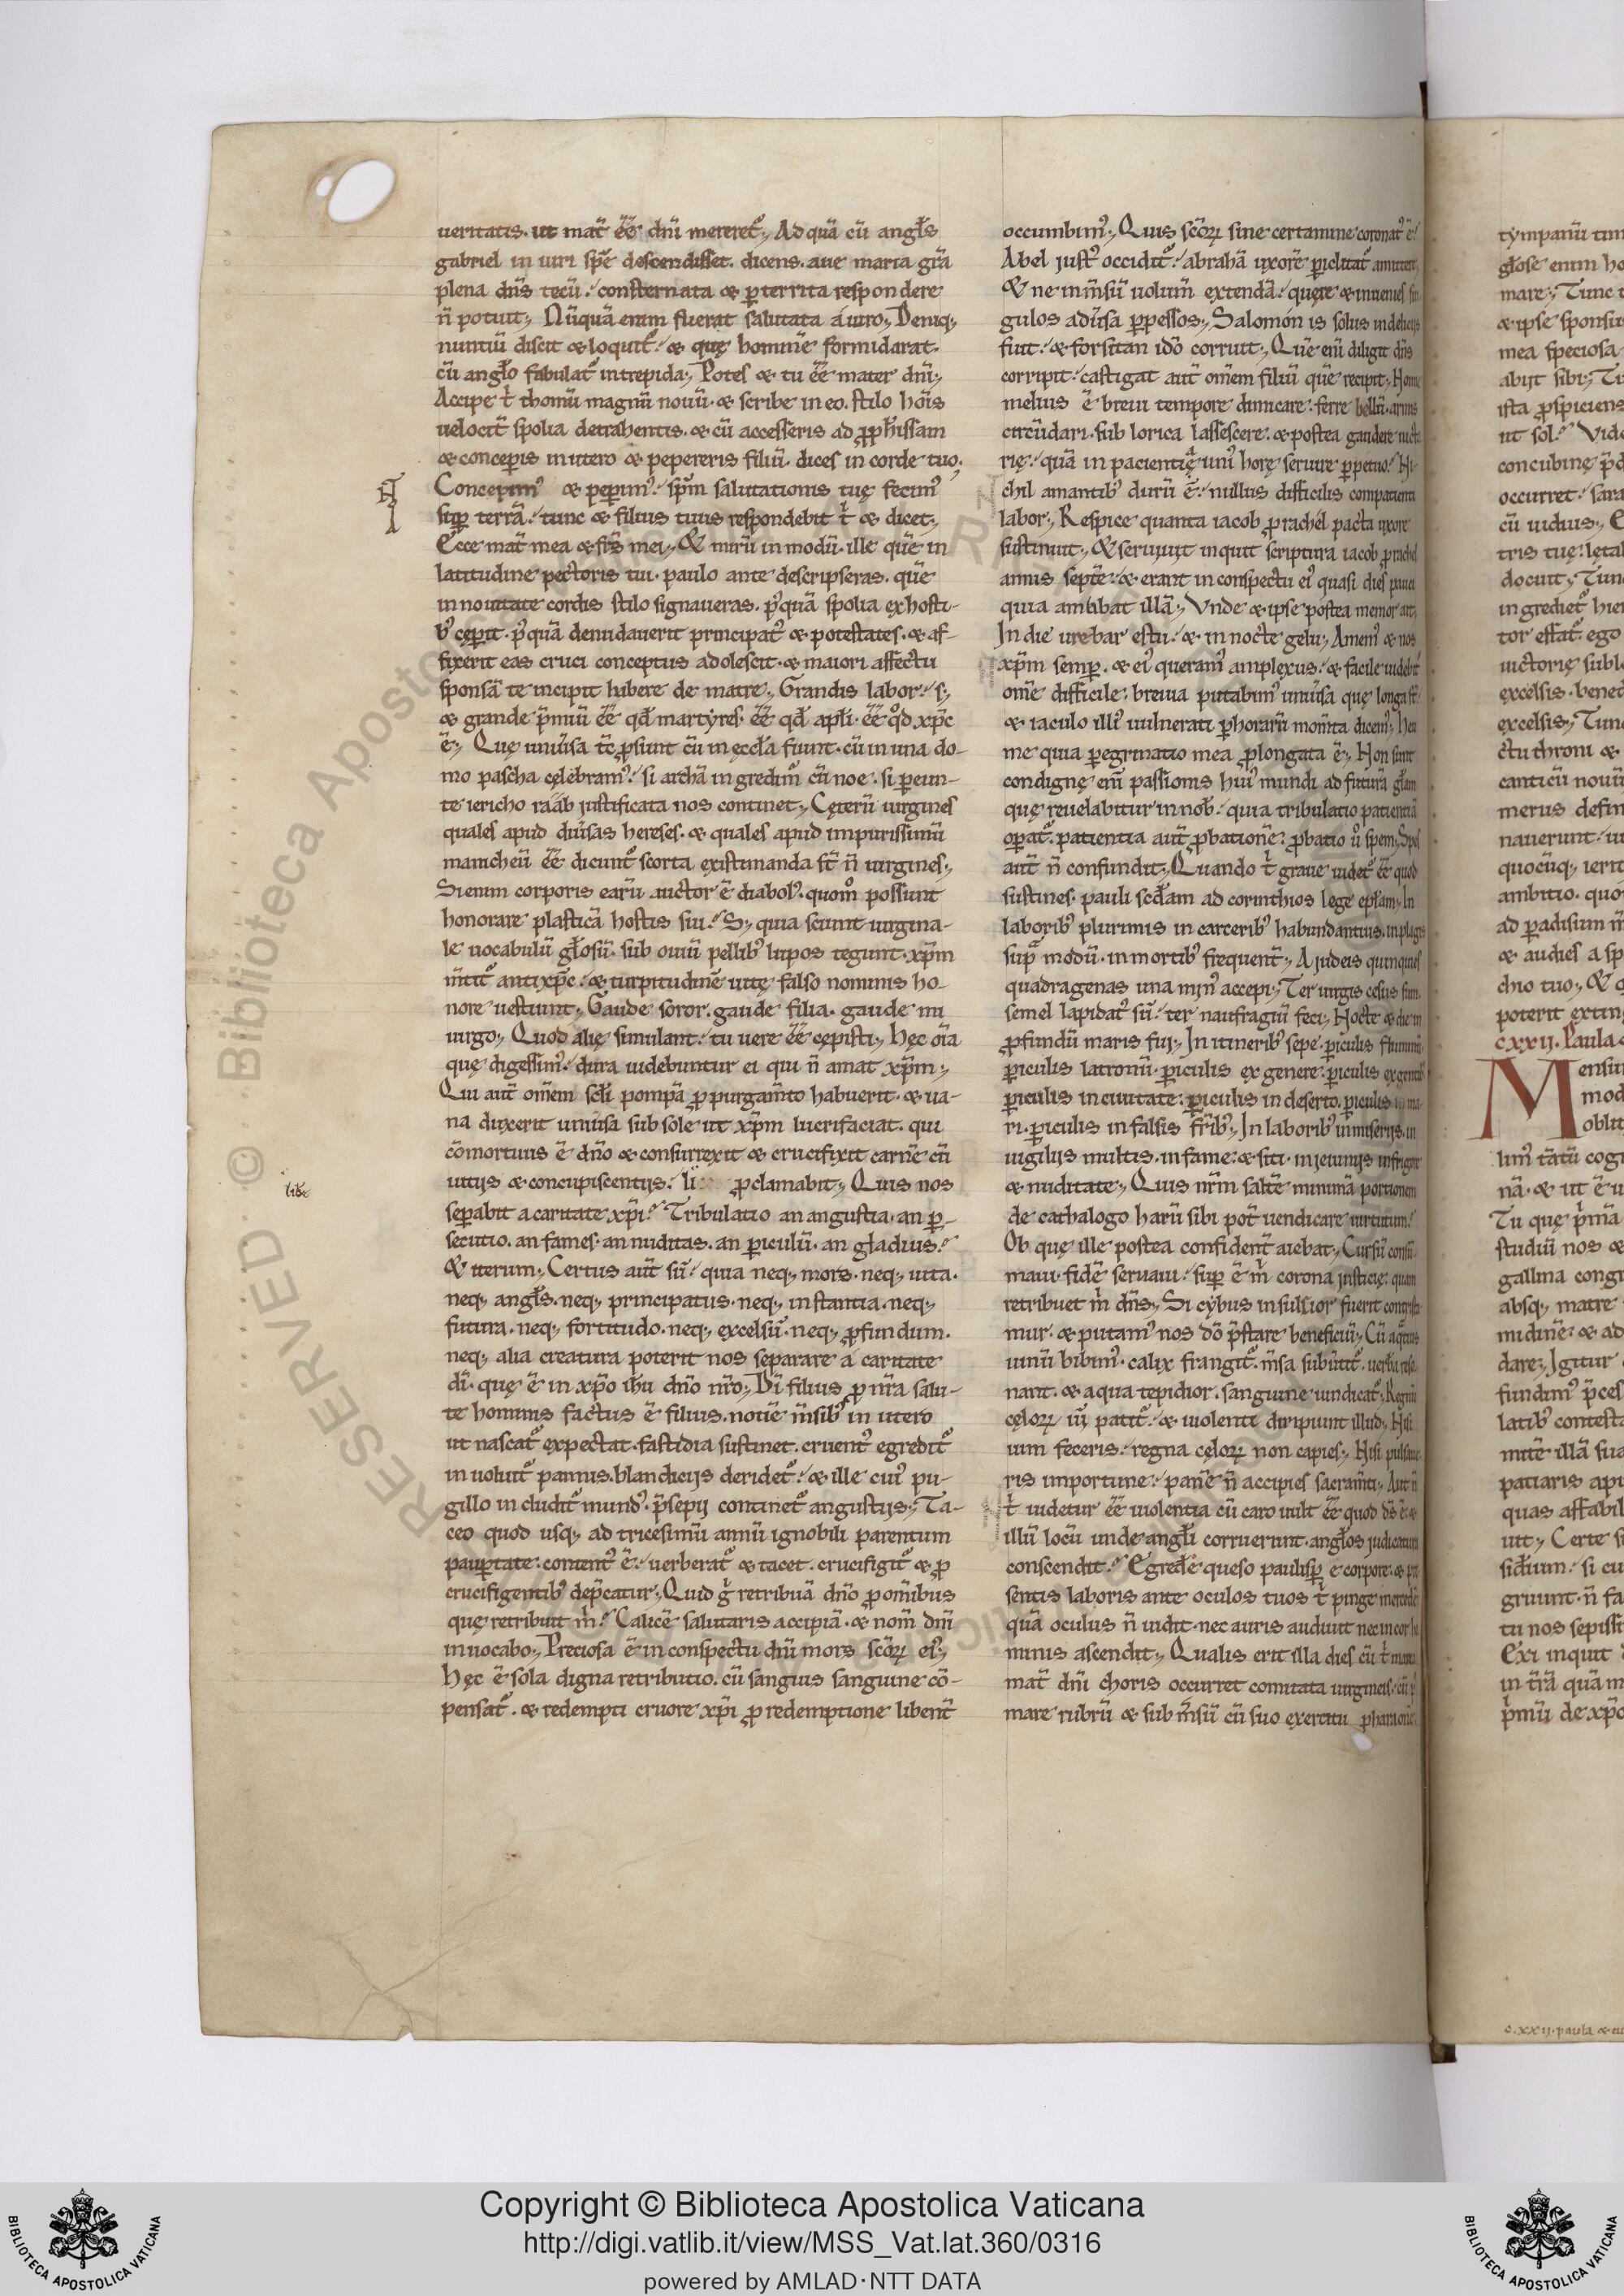 ueritatis. ut mat̃ ẽẽ dñi mereret᷑. Ad quã cũ angl̃s
gabriel in uiri spẽ descendisset. dicens. aue maria gr̃a
plena dñs tecũ. consternata & ꝑterrita respondere
ñ potuit. Nũquã enim fuerat salutata a uiro. Deniq;
nuntiũ discit & loquit᷑. & quę hominẽ formidarat.
cũ angl̃o fabulat᷑ intrepida. Potes & tu ẽẽ mater dñi.
Accipe t̾ thomũ magnũ nouũ. & scribe in eo. stilo hoĩs
uelocit̃ spolia detrahentis. & cũ accesseris ad ꝓph̃issam
& conceꝑis in utero & pepereris filiũ. dices in corde tuo.
Concepim᷒ & peꝑim᷒. sp̃m salutationis tuę fecim᷒
suꝑ terrã. tunc & filius tuus respondebit t̾ & dicet.
Ecce mat̃ mea & fr̃s mei. & mirũ in modũ. ille quẽ in
latitudine pectoris tui. paulo ante descripseras. quẽ
in nouitate cordis stilo signaueras. p᷒quã spolia ex hosti-
b᷒ cęꝑit. p᷒quã denudauerit principat᷒ & potestates. & af-
fixerit eas cruci conceptus adolescit. & maiori affectu
sponsã te incipit hibere de matre. Grandis labor. s;
& grande p̃miũ ẽẽ qd̃ martyres. ẽẽ qd̃ apl̃i. ẽẽ qd xp̃c
ẽ. Quę uniũsa tc̃ ꝓsunt cũ in ęccl̃a fiunt. cũ in una do-
mo pascha cęlebram᷒. si archã ingredim᷒ cũ noe. si ꝑeun-
te iericho raab justificata nos continet. Cęterũ uirgines
quales apud diũsas hereses. & quales apud impurissimũ
manicheũ ẽẽ dicunt᷑ scorta existimanda st̃ ñ uirgines.
Si enim corporis earũ auctor ẽ diabol᷒. quom̊ possunt
honorare plasticã hostis sui. S; quia sciunt uirgina-
le uocabulũ gl̃osũ. sub ouiũ pellib᷒ lupos tegunt. xp̃m
m̃tit᷑ antixp̃c. & turpitudinẽ uitę falso nominis ho-
nore uestiunt. Gaude soror. gaude filia. gaude mi
uirgo. Quod alię simulant. tu uere ẽẽ cępisti. Hęc oĩa
quę digessim᷒. dura uidebuntur ei qui ñ amat xp̃m.
Qui aut̃ om̃em scl̃i pompã ꝓ purgam̃to habuerit. & ua-
na duxerit uniũsa sub sole ut xp̃m lucrifaciat. qui
cõmortuus ẽ dño & consurrexit & crucifixit carnẽ cũ
uitijs & concupiscentijs. li ꝓclamabit. Quis nos
libe
seꝑabit a caritate xp̃i. Tribulatio an angustia. an ꝑ-
secutio. an fames. an nuditas. an ꝑiculũ. an gladius.
& iterum. Certus aut̃ sũ. quia neq; mors. neq; uita.
neq; angl̃s. neq; principatus. neq; instantia. neq;
futura. neq; fortitudo. neq; excelsũ. neq; ꝓfundum.
neq; alia creatura poterit nos separare a caritate
dĩ. quę ẽ in xp̃o ih̃u dño nr̃o. Dĩ filius ꝓ nr̃a salu-
te hominis factus ẽ filius. nouẽ m̃sib᷒ in utero
ut nascat᷑ expectat. fastidia sustinet. cruent᷒ egredit᷑
inuoluit᷑ pannis. blandicijs deridet᷑. & ille cui᷒ pu-
gillo includit᷑ mund᷒. p̃sepij continet᷑ angustijs. Ta-
ceo quod usq; ad tricesimũ annũ ignobili parentum
pauꝑtate. content᷒ ẽ. uerberat᷑ & tacet. crucifigit᷑ & ꝓ
crucifigentib᷒ dep̃catur. Quid g̾ retribuã dño ꝓ om̃ibus
quę retribuit m̾. Calicẽ salutaris accipiã. & nom̃ dñi
inuocabo. Preciosa ẽ in conspectu dñi mors sc̃oꝝ ei᷒.
Hęc ẽ sola digna retributio. cũ sanguis sanguine cõ-
pensat᷑. & redempti cruore xp̃i ꝓ redemptione libent̃
occumbim᷒. Quis sc̃oꝝ sine certamine coronat᷒ ẽ.
Abel just᷒ occidit᷑. abrahã uxorẽ ꝑiclitat᷑ amittere.
& ne in m̃sũ uolum̃ extendã. quęre & inuenies sin-
gulos adũsa ꝑpessos. Salomon is solus in delicijs
fuit. & forsitan idõ corruit. Quẽ enĩ diligit dñs
corripit. castigat aut̃ om̃em filiũ quẽ recipit. Nonne
melius ẽ breui tempore dimicare. ferre bellũ. armis
circũdari. sub lorica lassescere. & postea gaudere uicto-
rię. quã in pacientię uni᷒ horę seruire ꝑpetuo. Ni-
chil amantib᷒ durũ ẽ. nullus difficilis compatienti
labor. Respice quanta iacob ꝓ rachel pacta uxore
sustinuit. & seruijt inquit scriptura iacob ꝓ rachel
annis septẽ. & erant in conspectu ei᷒ quasi dies pauci
quia amabat illã. Vnde & ipse postea memorat.
In die urebar estu. & in nocte gelu. Amem᷒ & nos
xp̃m semꝑ. & ei᷒ queram᷒ amplexus. & facile uidebit᷑
om̃e difficile. breuia putabim᷒ uniũsa quę longa st̃.
& iaculo illi᷒ uulnerati ꝑ horarũ mom̃ta dicem᷒. Heu
me quia ꝑegrinatio mea ꝓlongata ẽ. Non sunt
condignę enĩ passionis hui᷒ mundi ad futurã gl̃am
quę reuelabitur in nob᷒. quia tribulatio patientiã
oꝑat᷑. patientia aut̃ ꝓbationẽ. ꝓbatio ů spem. Spes
aut̃ ñ confundit. Quando t̾ graue uidet᷑ ẽẽ quod
sustines. pauli scd̃am ad corinthios lege epl̃am. In
laborib᷒ plurimis in carcerib᷒ habundantius. in plagis
suꝑ modũ. in mortib᷒ frequent̃. A judeis quinquies
quadragenas una min᷒ accepi. Ter uirgis cesus sum.
semel lapidat᷒ sũ. ter naufragiũ feci. Nocte & die in
ꝓfundũ maris fuj. In itinerib᷒ sepe. ꝑiculis fluminũ.
ꝑiculis latronũ. ꝑiculis ex genere. ꝑiculis ex gentib᷒.
ꝑiculis in ciuitate. ꝑiculis in deserto. ꝑiculis in ma-
ri. ꝑiculis in falsis fr̃ib᷒. In laborib᷒ in miserijs. in
uigilijs multis. in fame. & siti. in jeiunijs in frigore
& nuditate. Quis nr̃m saltẽ minimã portionem
de cathalogo harũ sibi pot̃ uendicare uirtutum.
Ob quę ille postea confident̃ aiebat. Cursũ consũ-
maui. fidẽ seruaui. suꝑ ẽ m̾ corona justicię. quam
retribuet m̾ dñs. Si cybus insulsior fuerit contrista-
mur. & putam᷒ nos dõ p̃stare beneficiũ. Cũ aquatius
uinũ bibim᷒. calix frangit᷑. m̃sa subũtit᷑. uerbera reso-
nant. & aqua tepidior. sanguine uindicat᷑. Regnũ
cęloꝝ uĩ patit᷑. & uiolenti diripiunt illud. Nisi
uim feceris. regna cęloꝝ non capies. Nisi pulsaue-
ris importune. panẽ ñ accipies sacram̃ti. Aut ñ
t̾ uidetur ẽẽ uiolentia cũ caro uult ẽẽ quod dš ẽ. &
illũ locũ unde angl̃i corruerunt. angl̃os judicatura
conscendit. Egredẽ queso paulisꝑ e corpore. & pre-
sentis laboris ante oculos tuos t̾ pinge mercedẽ
quã oculus ñ uidit. nec auris audiuit nec in cor ho-
minis ascendit. Qualis erit illa dies cũ t̾ maria
mat̃ dñi choris occurret comitata uirgineis. cũ p᷒
mare rubrũ & sub m̃sũ cũ suo exercitu pharaone.
tympanũ
mare. Tunc
& ipse sponsus
mea speciosa
abijt sibi.
ista ꝓspiciens
ut sol. Vid
concubinę
occurret. sara
docuit. Tunc
ingrediet᷑
tor effat᷑. ego
uictorię
excelsis. bened
excelsis. Tunc
ctu throni &
canticũ nouũ
nauerunt.
quocũq; ierit
ambitio. quo
ad ꝑadisum
& audies a
chio tuo. &
poterit
cxxij. Paula
Mensur
mod
oblit
lim᷒ tãtũ cogi
nã. & ut ẽ
Tu quę p̃mã
studiũ nos &
gallina congr
absq; matre
dare. Igitur
fundim᷒ p̃ces
latib᷒ contesta
mitẽ illã sua
patiaris
quas affabil
uit. Certe
sidium. si cu
griunt. ñ fa
tu nos sepiss
Exi inquit
in tr̃ã quã
p̾mũ de xp̃o
c.xxij. paula &
Copyright © Biblioteca Apostolica Vaticana
http://digi.vatlib.it/view/MSS_Vat.lat.360/0316
powered by AMLAD·NTT DATA
BIBLIOTECA APOSTOLICA VATICANA
BIBLIOTECA APOSTOLICA VATICANA